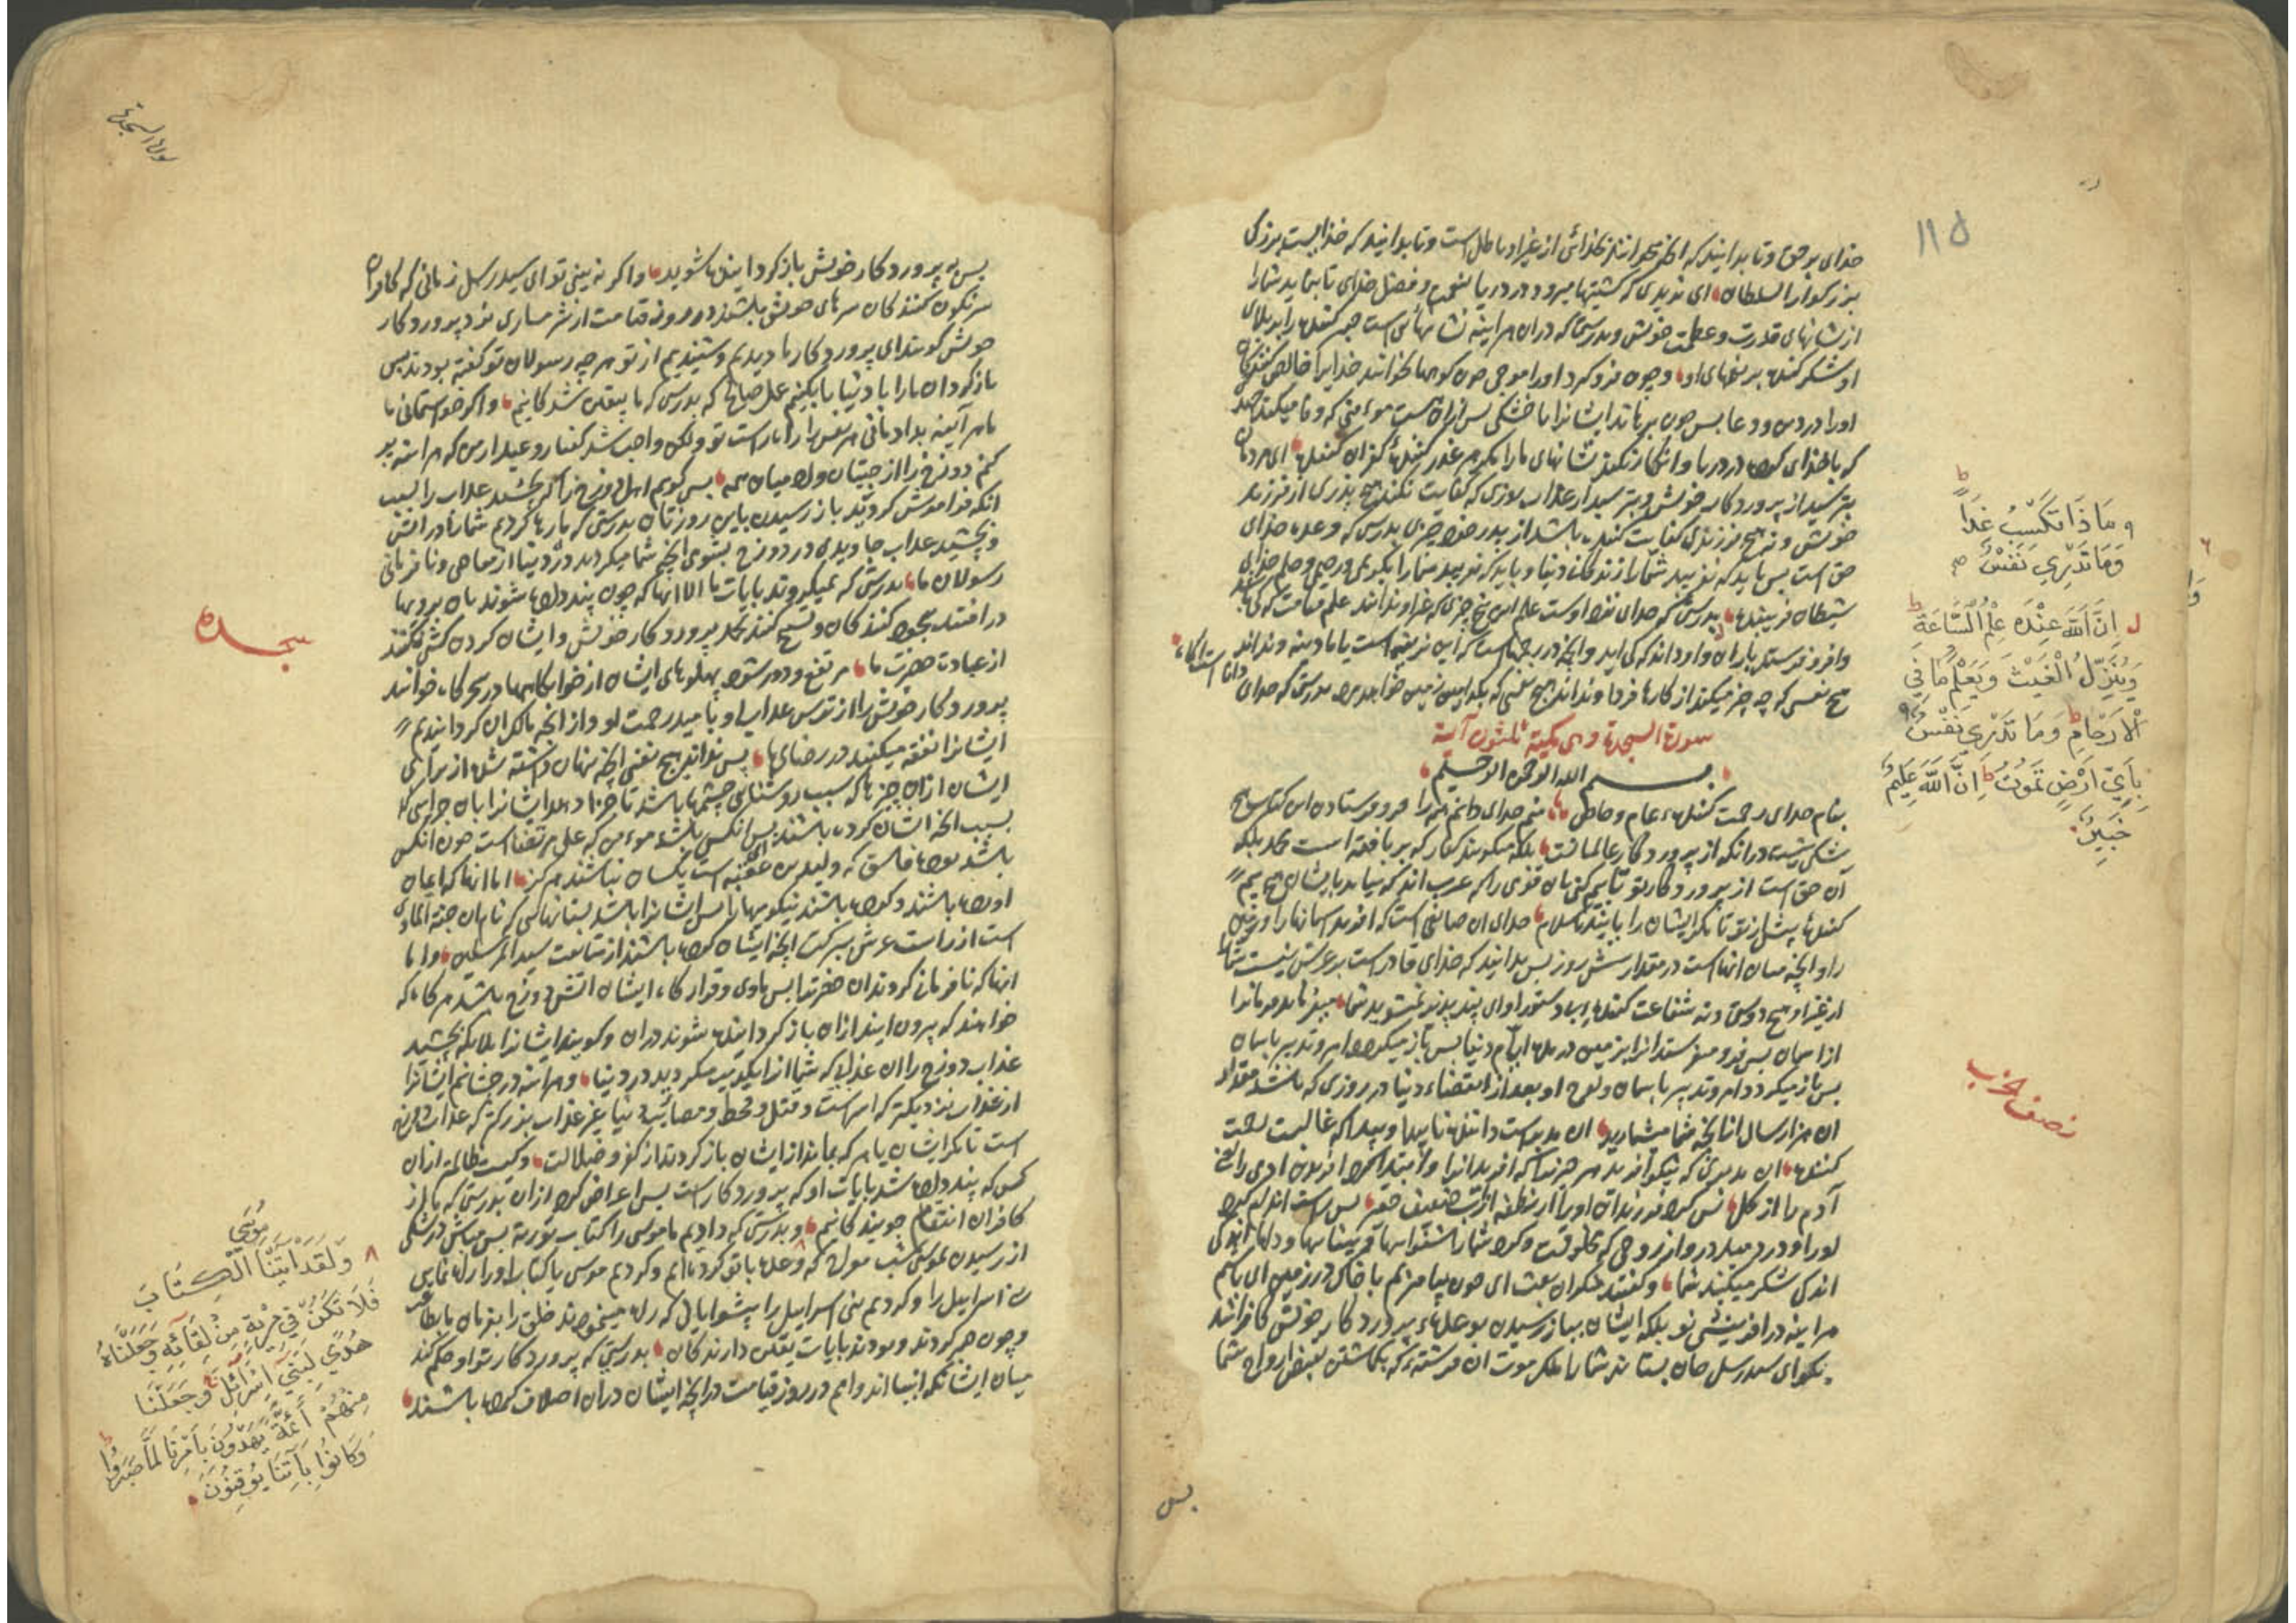 ۱۱۵
خدای برحق و تا بدانید که آنچه میخوانند بخدائی از غیر او باطل است و تا بدانید که خدایست بزرگی
بزرگوار السلطان ای ندیدی که کشتیها میرود در دریا بنعمت و فضل خدای تا بنماید شما را
از نشانهای قدرت و عظمت خویش و بدرستی که در آن هر آینه نشانهائی است صبر کننده را بر بلای
او شکر کننده بر نعمهای او و چون فرو گیرد او را موجی چون کوهها بخوانند خدایرا خالص کنندگان
او را در دین و دعا پس چون برهاند ایشانرا با خشکی پس از ایشان است مومنی که وفا میکند عهد
که با خدای کرده در دریا و انکار نکند نشانهای ما را مگر هر غدر کننده کفران کننده ای مردمان
بترسید از پروردگار خویش و بترسید از عذاب روزی که کفایت نکند هیچ پدری از فرزند
خویش و نه هیچ فرزندی کفایت کننده باشد از پدر خود چیزی بدرستی که وعده خدای
حق است پس باید که نفریبد شما را زندگانی دنیا و باید که نفریبد شما را بکرمی و رحیمی و حلم خدای
شیطان فریبنده بدرستی که خدای نزد اوست علم این پنج چیزی که غیر او نداند علم قیامت که کی باشد
و او فرو فرستد باران و او داند که کی آید و آنچه در رحمهاست که آن نرینه است یا مادینه و نداند
هیچ نفسی که چه چیز میکند از کارها فردا و نداند هیچ نفسی که بکدامین زمین خواهد مرد بدرستی که خدای
دانا است آگاه
سورة السجدة وهی مکیة ثلثون آیة
بسم الله الرحمن الرحیم
بنام خدای رحمت کننده عام و خاص منم خدای دانم همه را فرو فرستادن این کتاب هیچ
شکی نیست در آنکه از پروردگار عالمیانست بلکه میگویند کفار که بر بافته است محمد بلکه
آن حق است از پروردگار تو تا بیم کنی بآن قومی را که عرب اند که نیامد بایشان هیچ بیم
کننده پیش از تو تا مگر ایشان راه یابند باسلام خدای آن صانعی است که آفرید آسمانها را و زمین
را و آنچه میان آنهاست در مقدار شش روز پس بدانید که خدای قادر است بر عرش نیست شما
از غیر او هیچ دوستی و نه شفاعت کننده بی دستور او ای پند پذیر نمیشوید شما
از آسمان پس فرو میفرستد آنرا بزمین در مدة ایام دنیا پس باز میگردد امر و تدبیر بآسمان
پس باز میگردد امر و تدبیر بآسمان ولوح او بعد از انقضاء دنیا در روزی که باشد مقدار
آن هزار سال از آنچه شما میشمارید آن مدبر است داننده ناپیدا و پیدا که غالبست رحمت
کننده آن مدبری که نیکو آفرید هر چیز را که آفرید آنرا و ابتدا کرد آفریدن آدمی را یعنی
آدم را از گل پس کرد فرزندان او را از نطفه از آب ضعیف حقیر پس راست اندام کرد
او را و در دمید در او از روحی که مخلوقست و کرد شما را شنوائیها و بینائیها و دلها اندکی
اندکی شکر میکنید شما و گفتند منکران بعث ای چون بیامیزیم با خاک در زمین ای باشیم
هر آینه در آفرینشی نو بلکه ایشان بباز رسیدن بوعدهاء پروردگار خویش کافرانند
بگو ای سید رسل جان بستاند شما را ملک موت آن فرشته که گماشتن بقبض ارواح شما
پس
و ما ذا تکسب غدا
وما تدری نفس
ان الله عنده علم الساعة
وینزل الغیث ویعلم ما فی
الارحام وما تدری نفس
بای ارض تموت ان الله علیم
خبیر
نصف الحزب
سورة السجدة
پس به پروردگار خویش باز گردانیده شوید و اگر نه بینی تو ای سید رسل زمانی که کافران
سرنگون کنندگان سرهای خویش باشند در روز قیامت از شرمساری نزد پروردگار
خویش گویند ای پروردگار ما دیدیم و شنیدیم از تو هر چه رسولان تو گفته بودند پس
باز گردان ما را با دنیا تا بکنیم عمل صالح که بدرستی که ما بیقین شدگانیم و اگر خواستمانی ما
ما هر آینه بدادمانی هر نفس را راه راست تو ولکن واجب شد گفتار وعید از من که هر آینه پر
کنم دوزخ را از جنیان و آدمیان همه پس گویم اهل دوزخ را که بچشید عذاب را بسبب
آنکه فراموش کردید باز رسیدن باین روزتان بدرستی که ما رها کردیم شما را در آتش
و بچشید عذاب جاویدی در دوزخ بشومی آنچه شما میکردید در دنیا از معاصی و نافرمانی
رسولان ما بدرستی که نمیگروند بآیات ما الا آنها که چون پند داده شوند بآن برویها
در افتند سجود کنندگان و تسبیح کنند بحمد پروردگار خویش و ایشان گردن کشی نکنند
از عبادت حضرت ما مرتفع و دور شود پهلوهای ایشان از خوابگاهها در سحرگاه خوانند
پروردگار خویش را از ترس عذاب او و بامید رحمت او و از آنچه مالک آن گردانیدیم
ایشانرا نفقه میکنند در رضای ما پس نداند هیچ نفسی آنچه پنهان داشته شد از برای
ایشان از آن چیزها که سبب روشنائی چشمها باشد تا جزا دهد ایشانرا بآن جزائی که
بسبب آنچه ایشان کرده باشند پس آنکس باشد مومن که علی مرتضا است چون آنکس
باشد بود فاسق که ولید بن عقبه است یکسان نباشند هرگز اما آنها که ایمان
آورده باشند و کرده باشند نیکوییها را پس ایشانرا باشد بستانهائی که نام آن جنة الماوی
است از راست عرش ببرکت آنچه ایشان کرده باشند از متابعت سید المرسلین و اما
آنها که نافرمانی کردند آن حضرتدا پس ماوی و قرارگاه ایشان آتش دوزخ باشد هر گاه که
خواهند که بیرون آیند از آن باز گردانیده شوند در آن و گویند ایشانرا ملائکه بچشید
عذاب دوزخ را آن عذابی که شما آنرا تکذیب میکردید در دنیا و هر آینه در چشانیم ایشانرا
از عذاب نزدیکتر که اسر است و قتل و قحط و مصائب دنیا غیر عذاب بزرگتر که عذاب دوزخ
است تا مگر ایشان یا هر که بماند از ایشان باز گردند از کفر و ضلالت و کیست ظالمتر از آن
کس که پند داده شد بآیات او که پروردگار است پس اعراض کرد از آن بدرستی که ما از
کافران انتقام جویندگانیم و بدرستی که دادیم ما موسی را کتاب توریة پس مباش در شکی
از رسیدن موسی شب معراج که وعده با تو کرده ایم و کردیم موسی یا کتاب او را راه نمایی
بنی اسرائیل را و کردیم بنی اسرائیل را پیشوایانی که راه مینمودند خلق را بفرمان ما
و چون صبر کردند و بودند بآیات یقین دارندگان بدرستی که پروردگار تو او حکم کند
میان ایشان که انبیااند و امم در روز قیامت در آنچه ایشان در آن اختلاف کرده باشند
سجده
ولقد آتینا موسی الکتاب
فلا تکن فی مریة من لقائه وجعلناه
هدی لبنی اسرائیل وجعلنا
منهم ائمة یهدون بامرنا لما صبروا
وکانوا بآیاتنا یوقنون